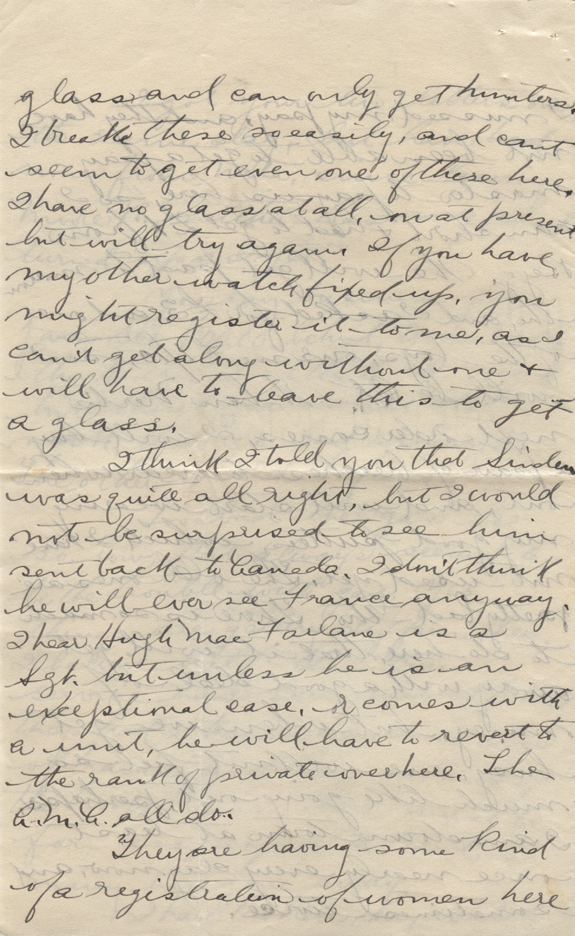 glass and can only get hunters.
I break these so easily, and cant
seem to get even one of these here.
I have no glass at all, on at present
but will try again. If you have
my other watch fixed up, you
might register it to me, as I
can't get along without one +
will have to leave this to get
a glass.
I think I told you that
was quite all right, but I would
not be surprised to see him
sent back to Canada. I don't think
he will ever see France anyway.
I hear Hugh Mac Farlane is a
Sgt. but unless he is an
exceptional case, or comes with
a unit, he will have to revert to
the rank of private over here. The
all do.
They are having some kind
of a registration of women here